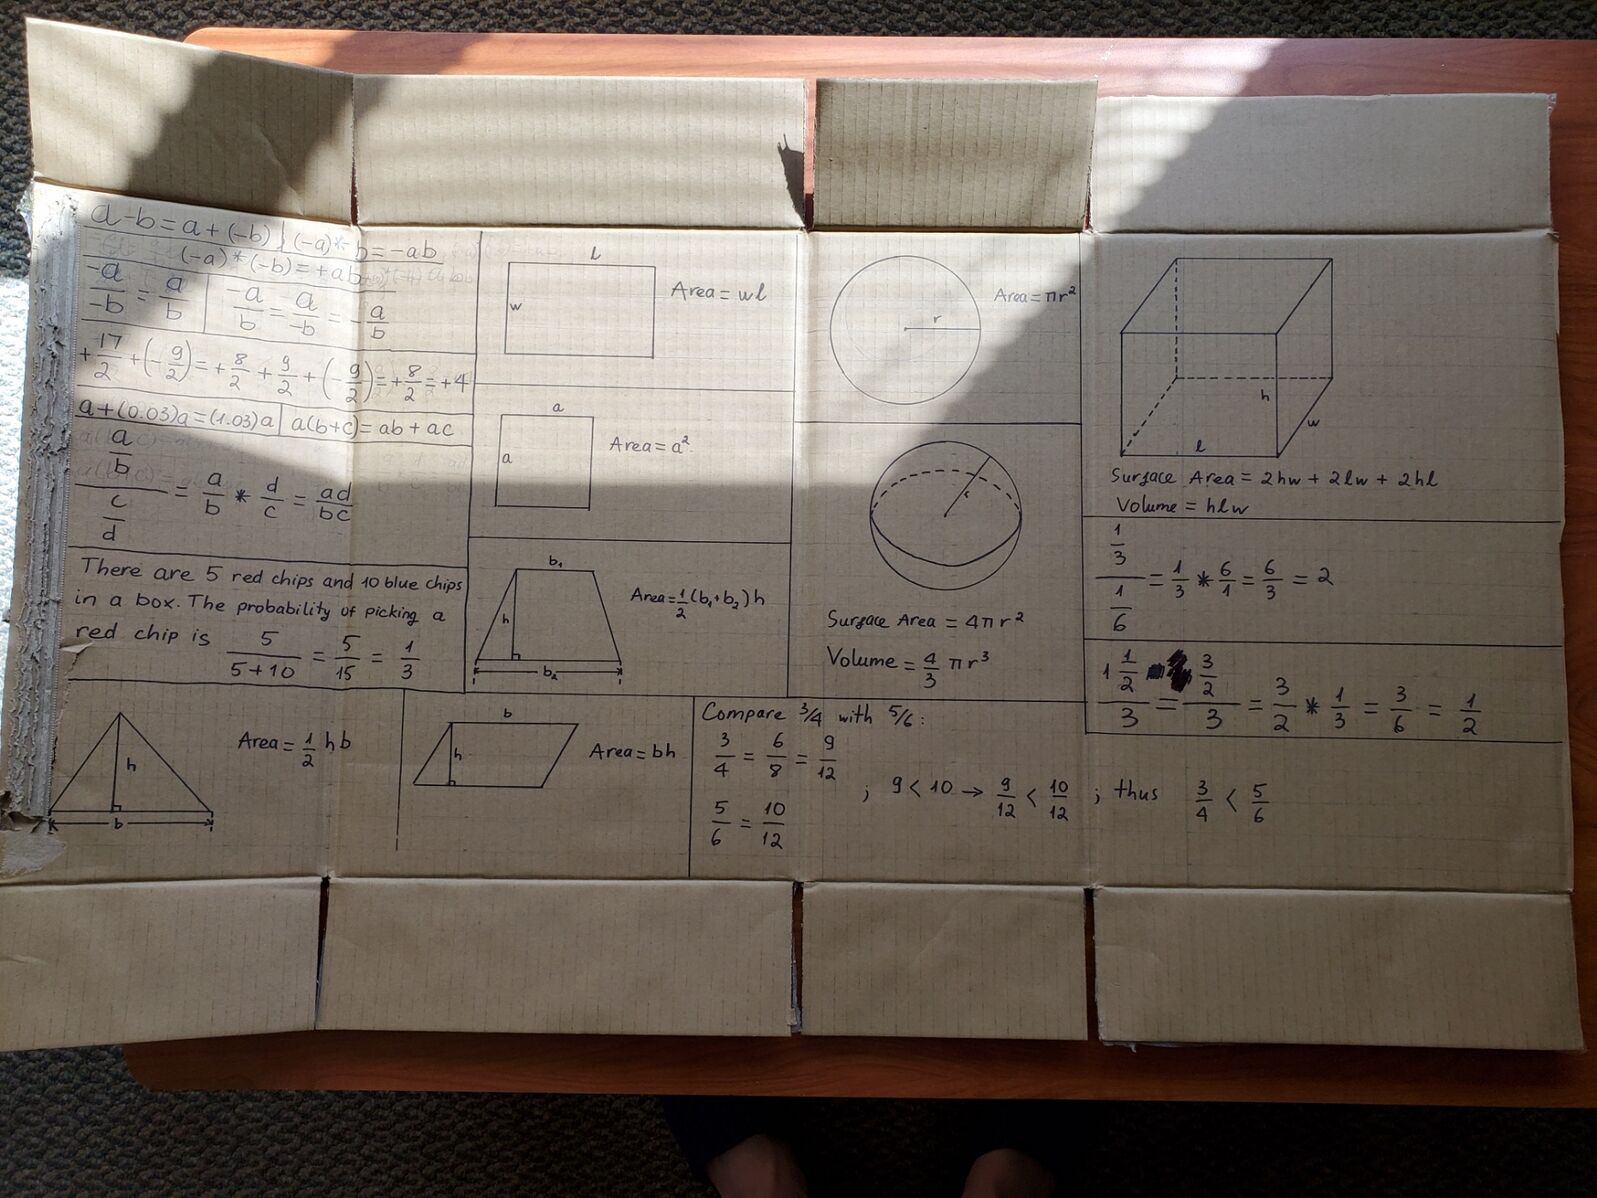 a-b=a+(-b) | (-a)*b=-ab
(-a)*(-b)=+ab
-a/-b = a/b | -a/b = a/-b = -a/b
+17/2 + (-9/2) = +8/2 + 9/2 + (-9/2) = +8/2 = +4
a+(0.03)a=(1.03)a | a(b+c)=ab+ac
a/b / c/d = a/b * d/c = ad/bc
There are 5 red chips and 10 blue chips
in a box. The probability of picking a
red chip is 5/(5+10) = 5/15 = 1/3
h
b
Area = 1/2 hb
l
w
Area = wl
a
a
Area = a²
b₁
h
b₂
Area = 1/2 (b₁+b₂) h
b
h
Area = bh
r
Area = πr²
r
Surface Area = 4πr²
Volume = 4/3 πr³
h
w
l
Surface Area = 2hw + 2lw + 2hl
Volume = hlw
1/3 / 1/6 = 1/3 * 6/1 = 6/3 = 2
1 1/2 / 3 = 3/2 / 3 = 3/2 * 1/3 = 3/6 = 1/2
Compare 3/4 with 5/6:
3/4 = 6/8 = 9/12
5/6 = 10/12
; 9 < 10 → 9/12 < 10/12 ; thus 3/4 < 5/6